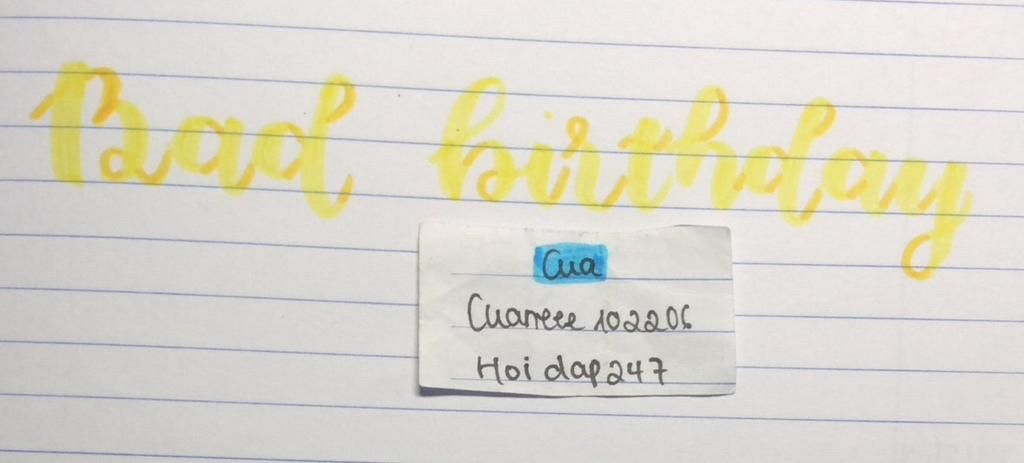 Bad birthday
Cua
Cuarrese 102206
Hoi dap247